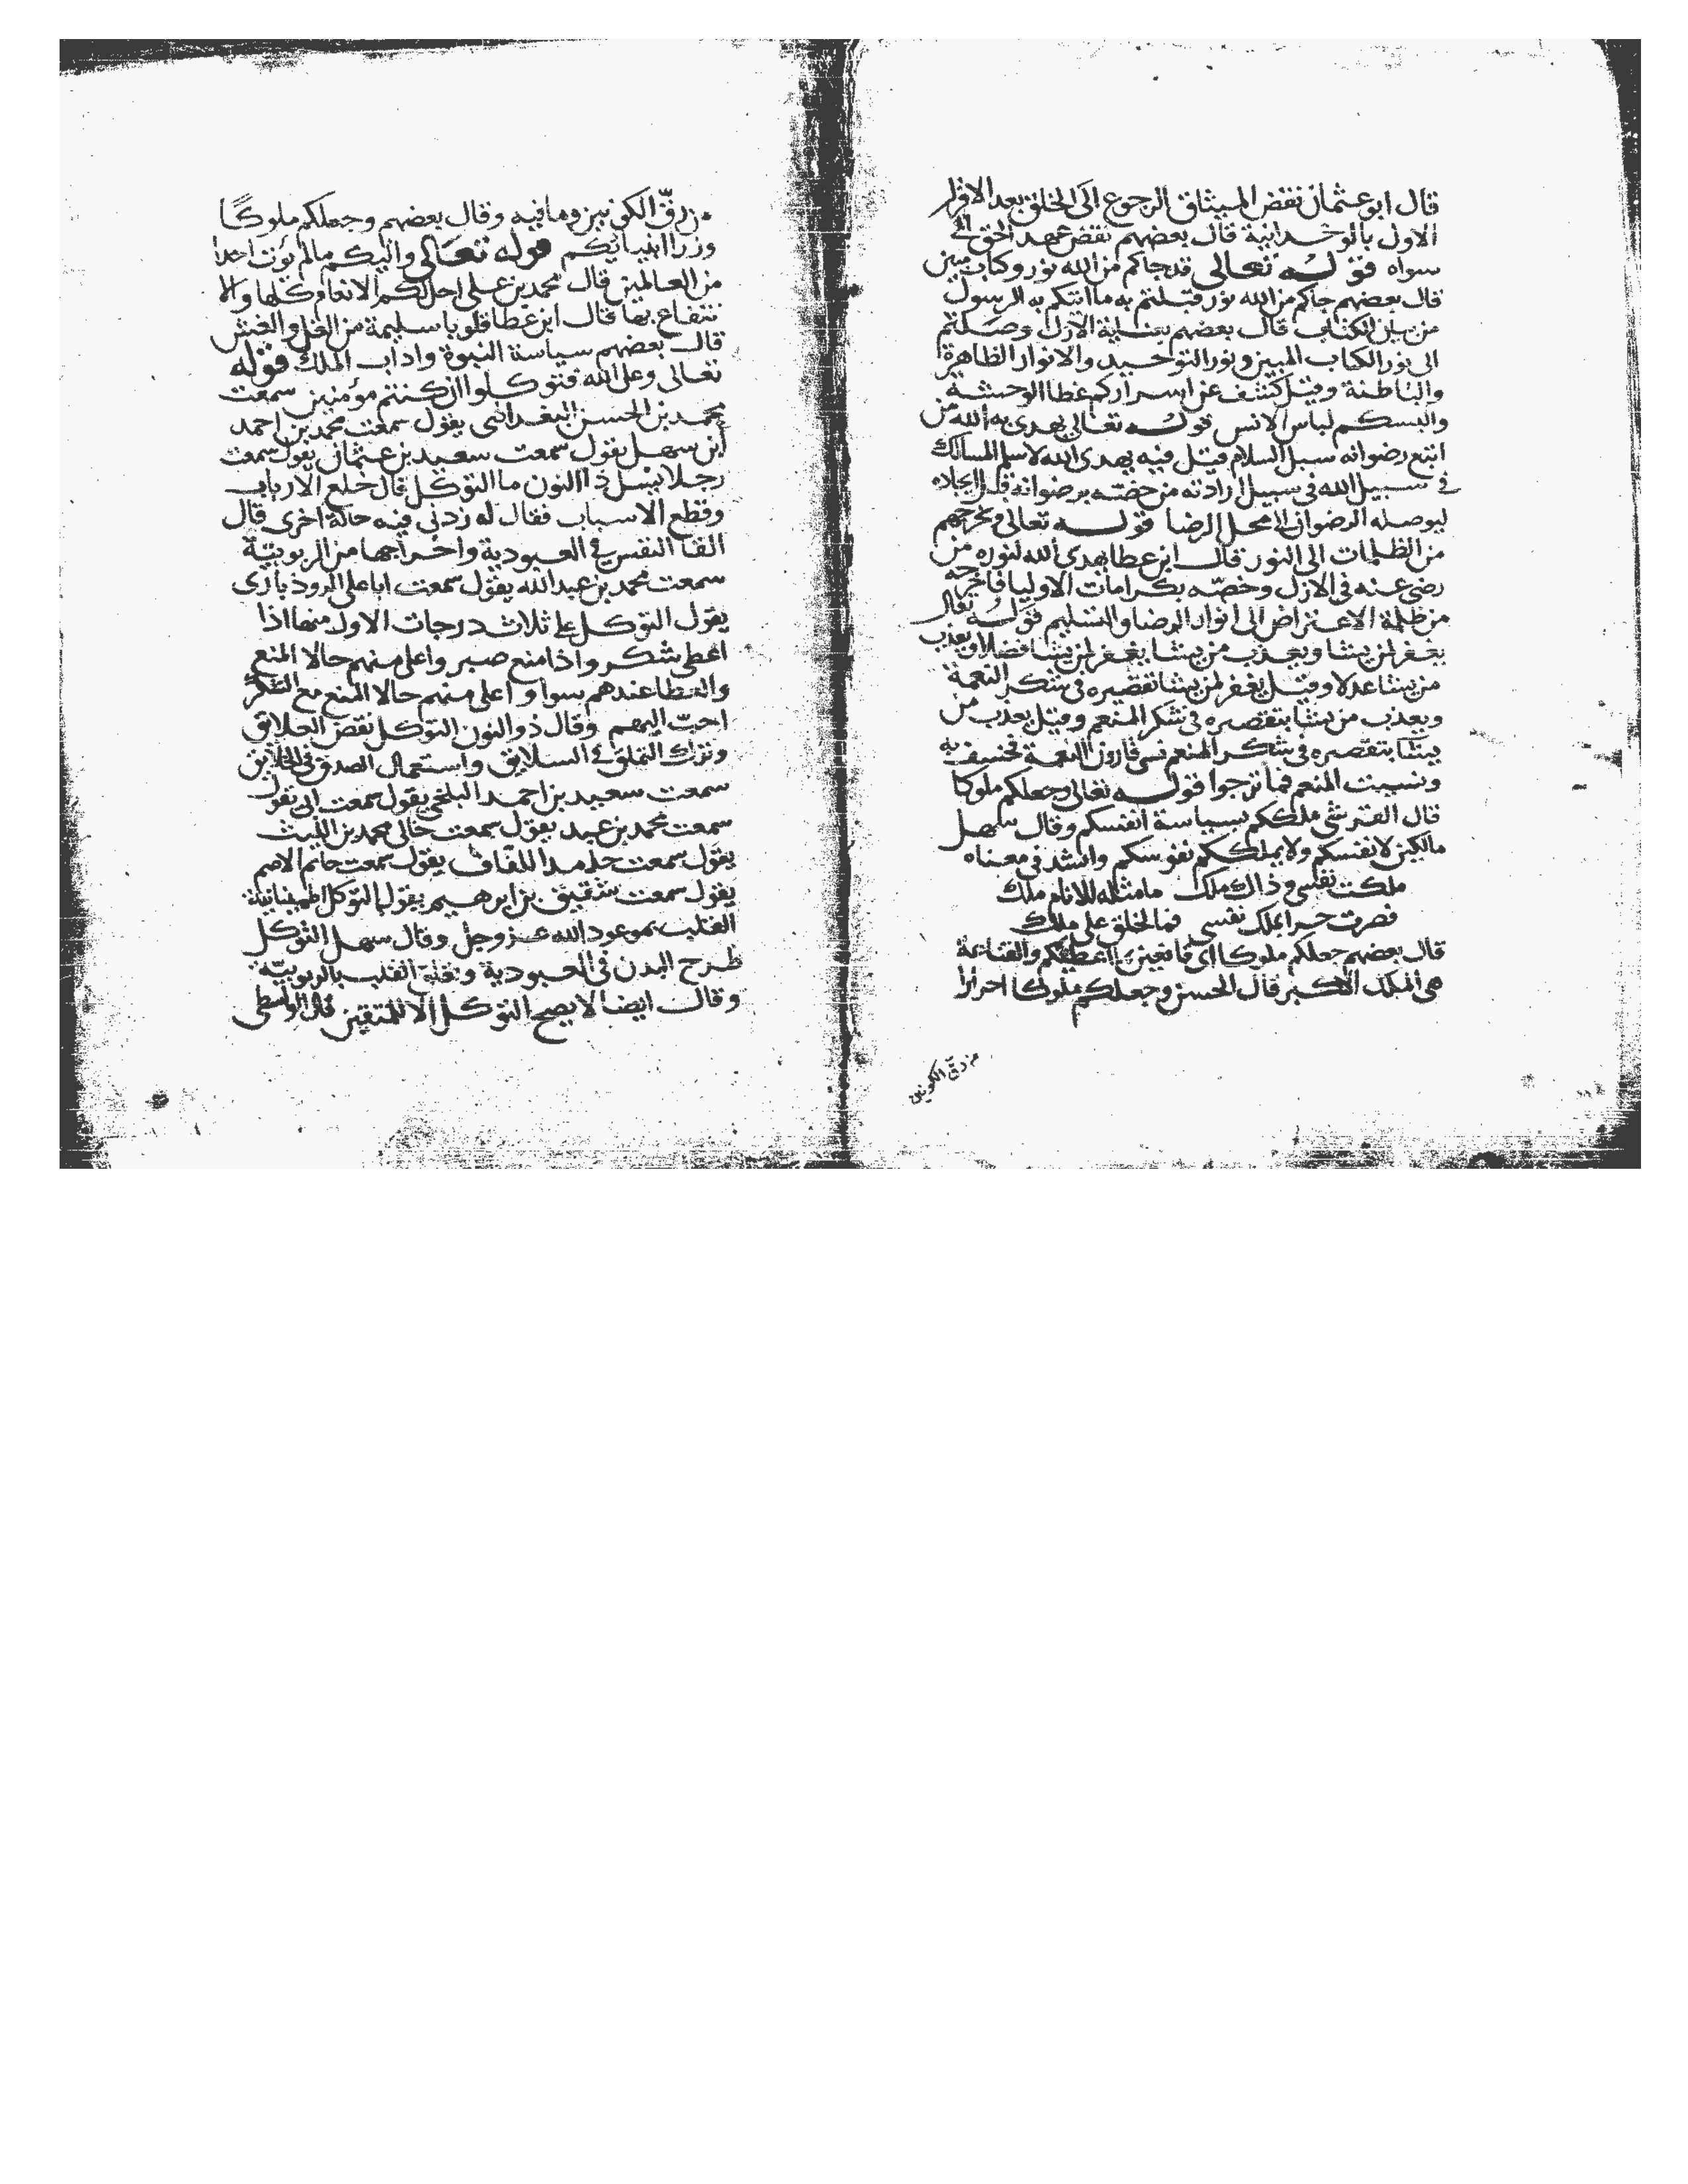 قال ابو عثمان نقض الميثاق الرجوع الى الخلق بعد الاقرار
الاول بالوحدانية قال بعضهم نقض عهد الحق الى
سواه قوله تعالى قد جاكم من الله نور وكتاب مبين
قال بعضهم جاكم من الله نور قبلتم به ما اتتكم به الرسول
من الكتاب قال بعضهم بعناية الازل وصلتم
الى نور الكتاب المبين ونور التوحيد والانوار الظاهرة
والباطنة وقيل كشف عن اسراركم غطا الوحشة
والبسكم لباس الانس قوله تعالى يهدى به الله من
اتبع رضوانه سبل السلام قيل فيه يهدى الله لاسلم المسالك
فى سبيل الله فى سبيل ارادته من خصه برضوانه
ليوصله الرضوان الى محل الرضا قوله تعالى ويخرجهم
من الظلمات الى النور قال ابن عطا يهدى الله لنوره من
رضى عنه فى الازل وخصّه بكرامات الاوليا فاخرجه
من ظلمة الاعتراض الى انوار الرضا والتسليم قوله تعالى
يغفر لمن يشا ويعذب من يشا يغفر لمن يشا فضلا ويعذب
من يشا عدلا وقيل يغفر لمن يشا تقصيره فى شكر النعمة
ويعذب من يشا بتقصيره فى شكر المنعم وقيل يعذب من
يشا بتقصيره فى شكر المنعم نسى قارون النعمة فخسف به
ونسيت المنعم فما ترجوا قوله تعالى وجعلكم ملوكا
قال القرشى ملككم بسياسة انفسكم وقال سهل
مالكين لانفسكم ولا يملككم نفوسكم وانشد فى معناه
ملكت نفسى وذاك ملك ما مثله للانام ملك
فصرت حرا بملك نفسى فما لخلق على ملك
قال بعضهم جعلكم ملوكا اى قانعين بما اعطيتكم والقناعة
هى الملك الاكبر قال الحسن وجعلكم ملوكا احرارا
من رق الكونين
من رقّ الكونين وما فيه وقال بعضهم وجعلكم ملوكا
وزرا انبيائكم قوله تعالى واتيكم مالم يوت احدا
من العالمين قال محمد بن على احل لكم الانعام كلها والا
نتفاع بها قال ابن عطا قلوبا سليمة من الغل والغش
قال بعضهم سياسة النبوة واداب الملك قوله
تعالى وعلى الله فتوكلوا ان كنتم مؤمنين سمعت
محمد بن الحسن البغدادى يقول سمعت محمد بن احمد
ابن سهل يقول سمعت سعيد بن عثمان يقول سمعت
رجلا يسل ذا النون ما التوكل قال خلع الارباب
وقطع الاسباب فقال له زدنى فيه حالة اخرى قال
القا النفس فى العبودية واخراجها من الربوبيّة
سمعت محمد بن عبد الله يقول سمعت ابا على الروذبارى
يقول التوكل على ثلاث درجات الاول منها اذا
اعطى شكر واذا منع صبر واعلى منهم حالا المنع
والعطا عندهم سوا واعلى منهم حالا المنع مع الشكر
احبّ اليهم وقال ذو النون التوكل نقض العلائق
وترك التملق فى السلايق واستعمال الصدق فى الخلايق
سمعت سعيد بن احمد البلخى يقول سمعت ابى يقول
سمعت محمد بن عبد يقول سمعت خالى محمد بن الليث
يقول سمعت حامدا اللفاف يقول سمعت حاتم الاصم
يقول سمعت شقيق بن ابرهيم يقول التوكل طمانينة
القلب بموعود الله عز وجل وقال سهل التوكل
طرح البدن فى العبودية وتعلق القلب بالربوبيّة
وقال ايضا لا يصح التوكل الا للمتقين قال الواسطى